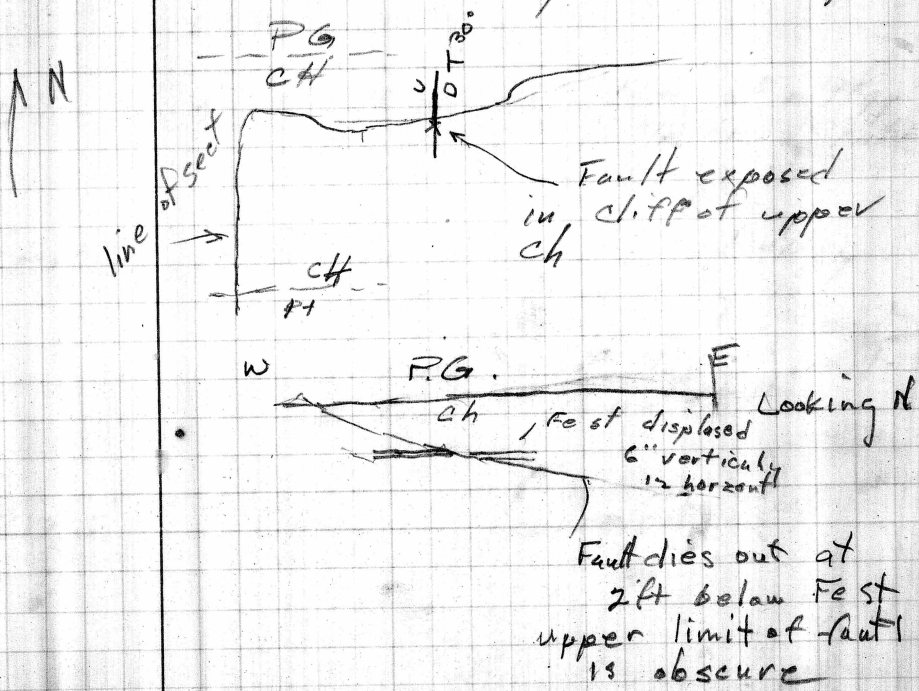 P G
CH
N
U
D
T 30°
line of sect
Fault exposed
in cliff of upper
Ch
CH
Pt
W
P.G.
E
Looking N
Ch
Fe st displased
6" verticaly
12 horzontl
Fault dies out at
2ft below Fe st
upper limit of fault
is obscure